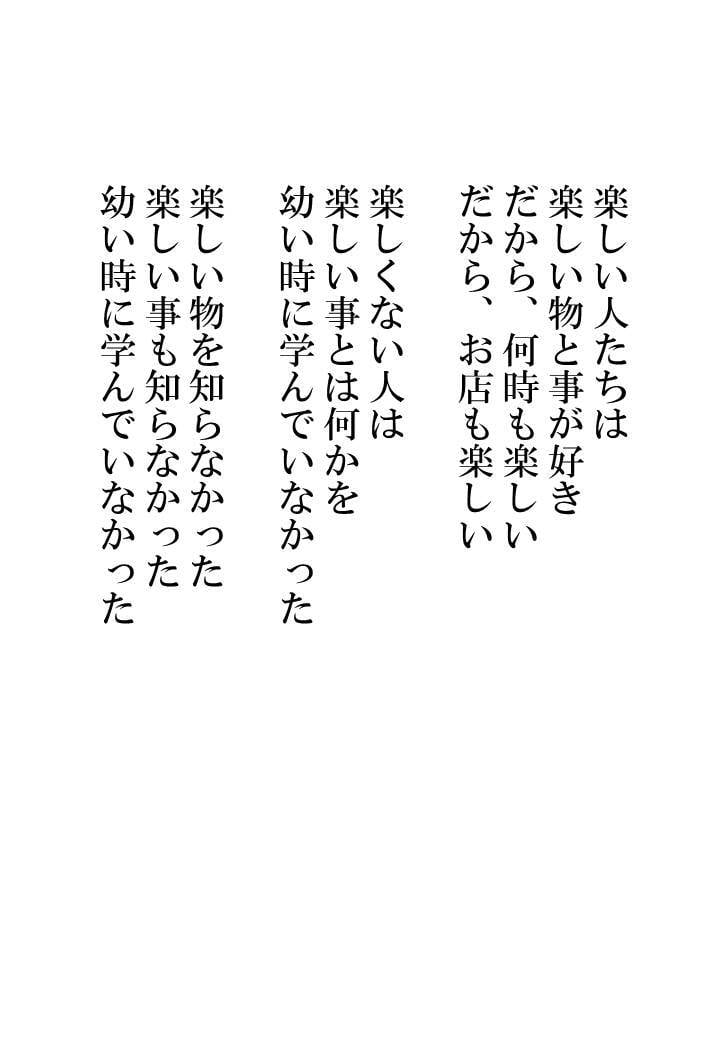 楽しい人たちは
楽しい物と事が好き
だから、何時も楽しい
だから、お店も楽しい
楽しくない人は
楽しい事とは何かを
幼い時に学んでいなかった
楽しい物を知らなかった
楽しい事も知らなかった
幼い時に学んでいなかった